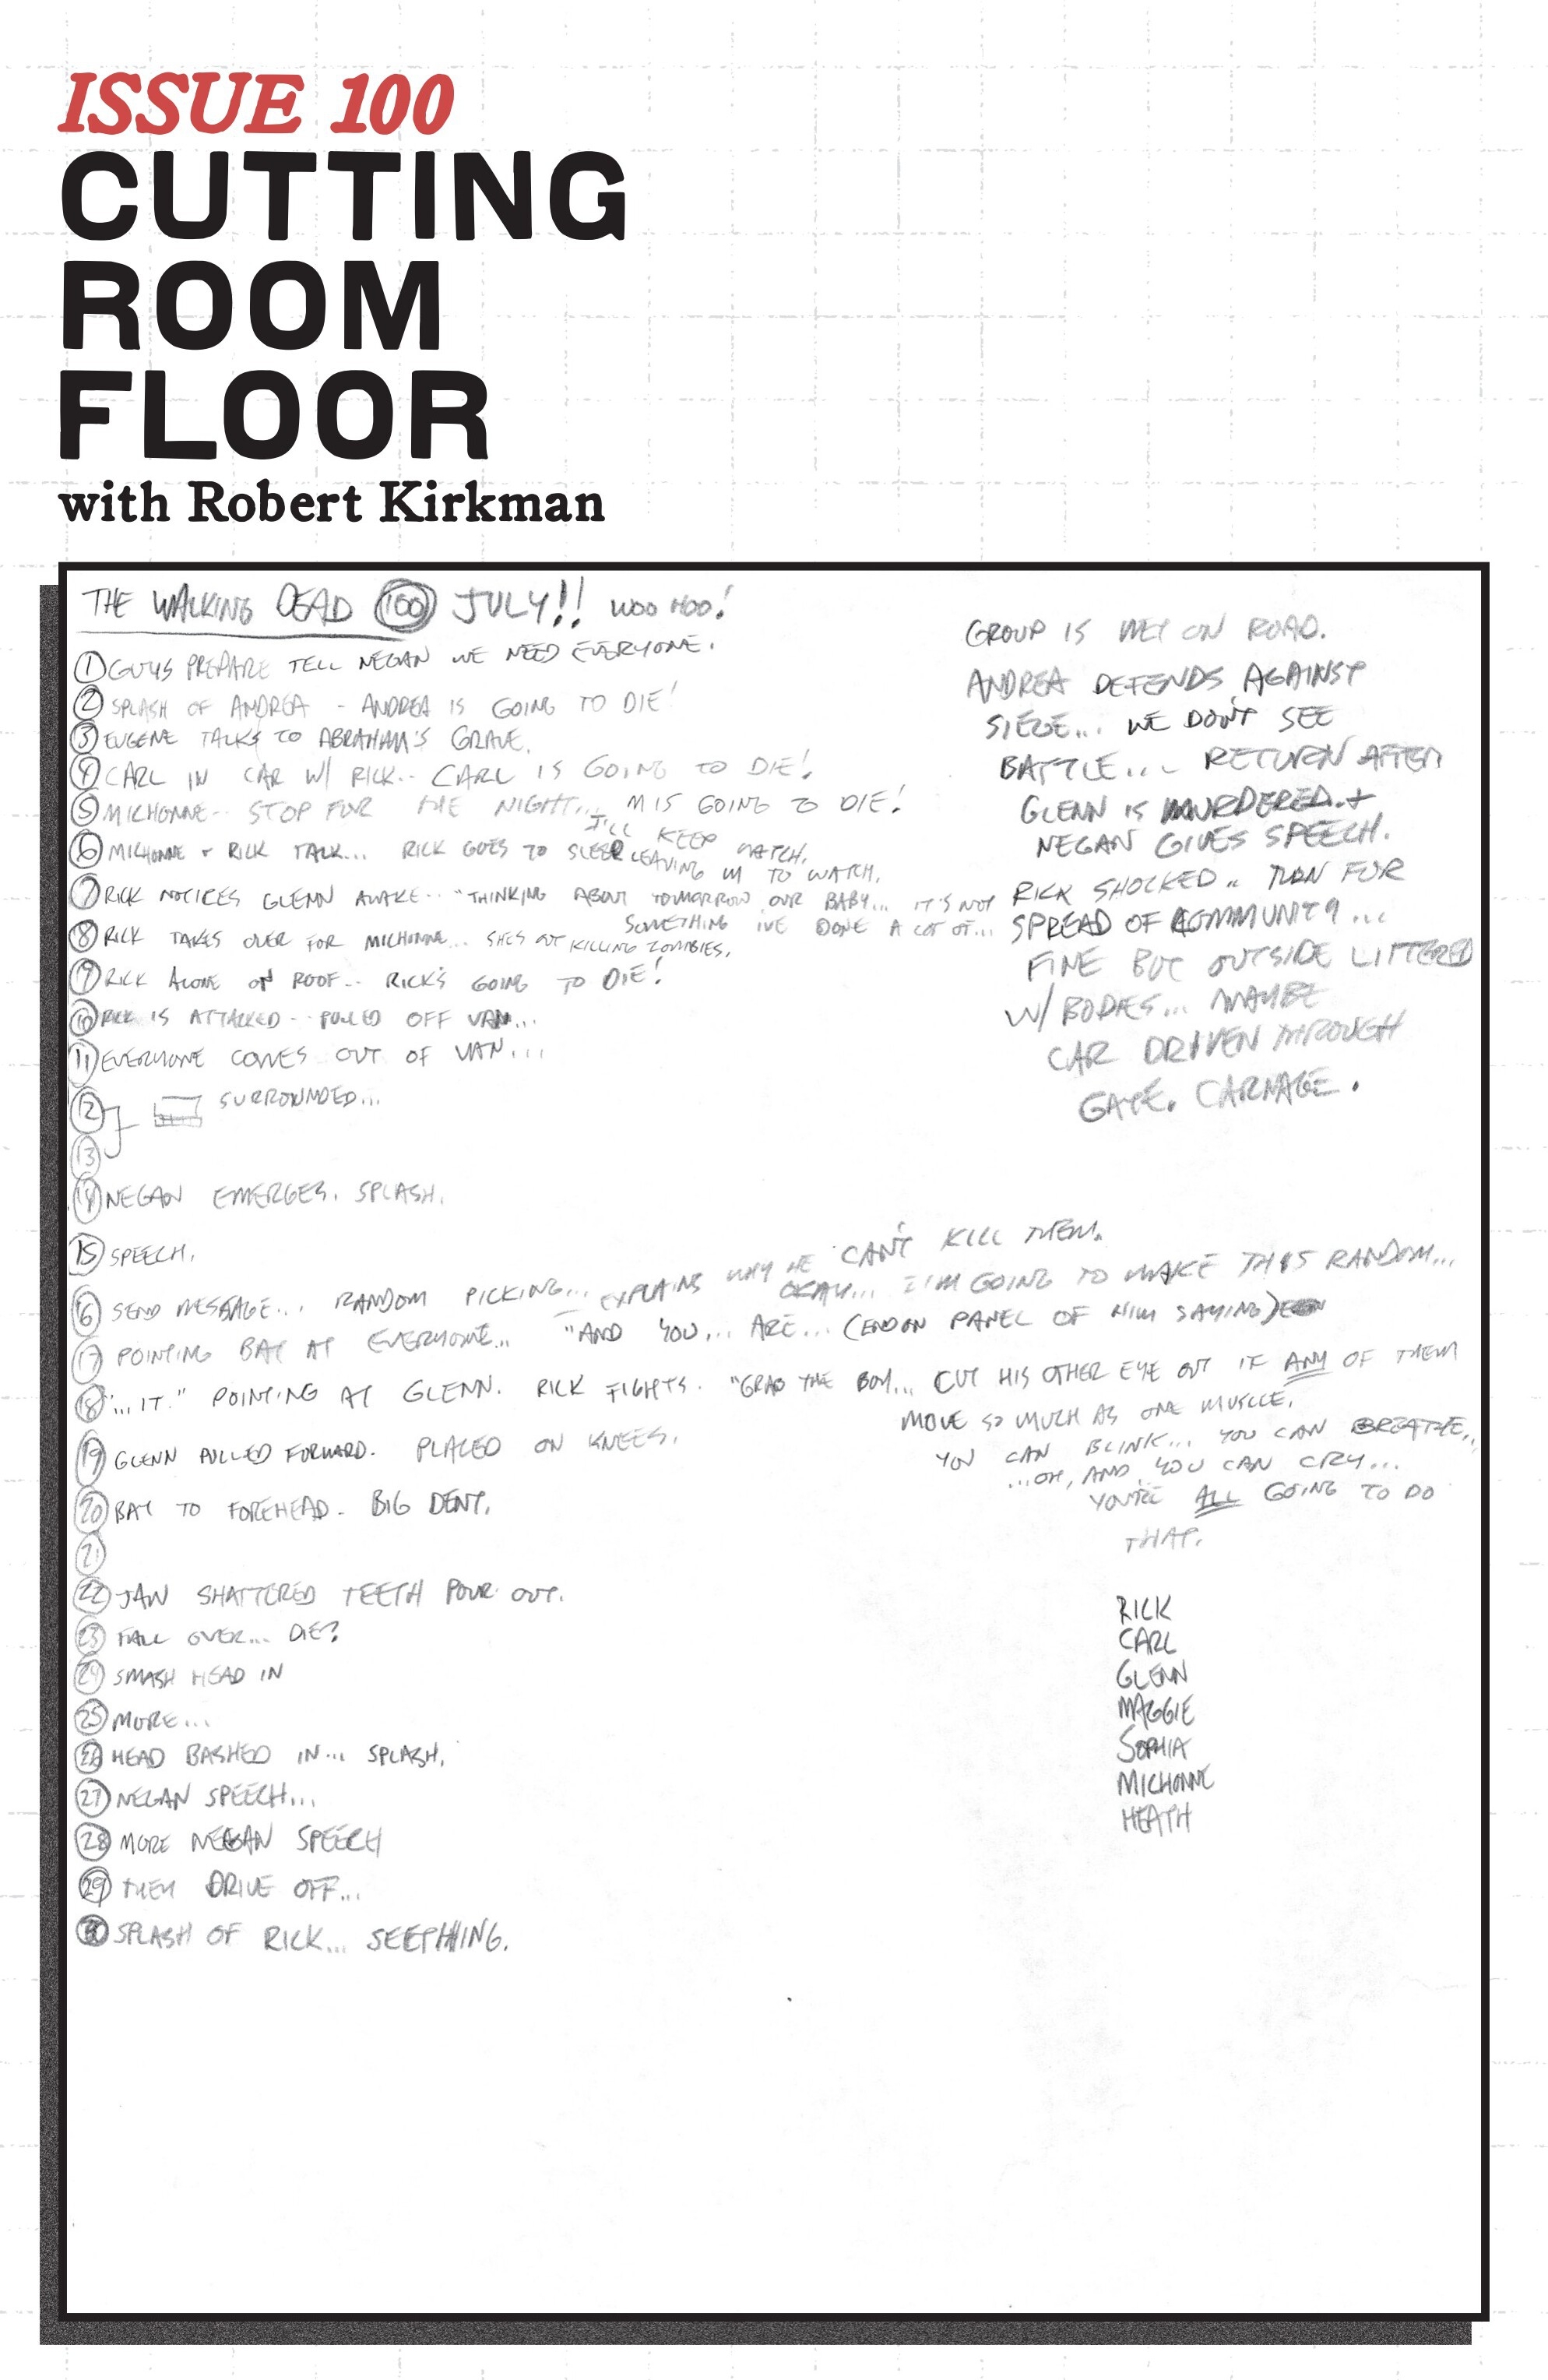 ISSUE 100
CUTTING
ROOM
FLOOR
with Robert Kirkman
THE WALKING DEAD 100 JULY!! WOO HOO!
1 GUYS PREPARE TELL NEGAN WE NEED EVERYONE.
2 SPLASH OF ANDREA - ANDREA IS GOING TO DIE!
3 EUGENE TALKS TO ABRAHAM'S GRAVE.
4 CARL IN CAR W/ RICK.. CARL IS GOING TO DIE!
5 MICHONNE.. STOP FOR THE NIGHT... M IS GOING TO DIE!
I'LL KEEP WATCH.
6 MICHONNE + RICK TALK... RICK GOES TO SLEEP LEAVING M TO WATCH.
7 RICK NOTICES GLENN AWAKE.. "THINKING ABOUT TOMORROW OUR BABY... IT'S NOT
SOMETHING IVE DONE A LOT OF...
8 RICK TAKES OVER FOR MICHONNE... SHES OUT KILLING ZOMBIES.
9 RICK ALONE ON ROOF.. RICK'S GOING TO DIE!
10 RICK IS ATTACKED.. PULLED OFF VAN...
11 EVERYONE COMES OUT OF VAN...
12 SURROUNDED...
13
14 NEGAN EMERGES. SPLASH.
15 SPEECH.
16 SEND MESSAGE... RANDOM PICKING... EXPLAINS WHY HE CAN'T KILL THEM.
OKAY... I'M GOING TO MAKE THIS RANDOM...
17 POINTING BAT AT EVERYONE... "AND YOU... ARE... (END ON PANEL OF HIM SAYING)
18 "...IT." POINTING AT GLENN. RICK FIGHTS. "GRAB THE BOY... CUT HIS OTHER EYE OUT IF ANY OF THEM
MOVE SO MUCH AS ONE MUSCLE.
YOU CAN BLINK... YOU CAN BREATHE..
...OH, AND YOU CAN CRY...
YOU'RE ALL GOING TO DO
THAT.
19 GLENN PULLED FORWARD. PLACED ON KNEES.
20 BAT TO FOREHEAD - BIG DENT.
21
22 JAW SHATTERED TEETH POUR OUT.
23 FALL OVER... DIE?
24 SMASH HEAD IN
25 MORE...
26 HEAD BASHED IN... SPLASH.
27 NEGAN SPEECH...
28 MORE NEGAN SPEECH
29 THEY DRIVE OFF...
SPLASH OF RICK...
GROUP IS MET ON ROAD.
ANDREA DEFENDS AGAINST
SIEGE... WE DON'T SEE
BATTLE... RETURN AFTER
GLENN IS MURDERED. +
NEGAN GIVES SPEECH.
RICK SHOCKED.. TURN FOR
SPREAD OF COMMUNITY...
FINE BUT OUTSIDE LITTERED
W/ BODIES... MAYBE
CAR DRIVEN THROUGH
GATE. CARNAGE.
RICK
CARL
GLENN
MAGGIE
SOPHIA
MICHONNE
HEATH